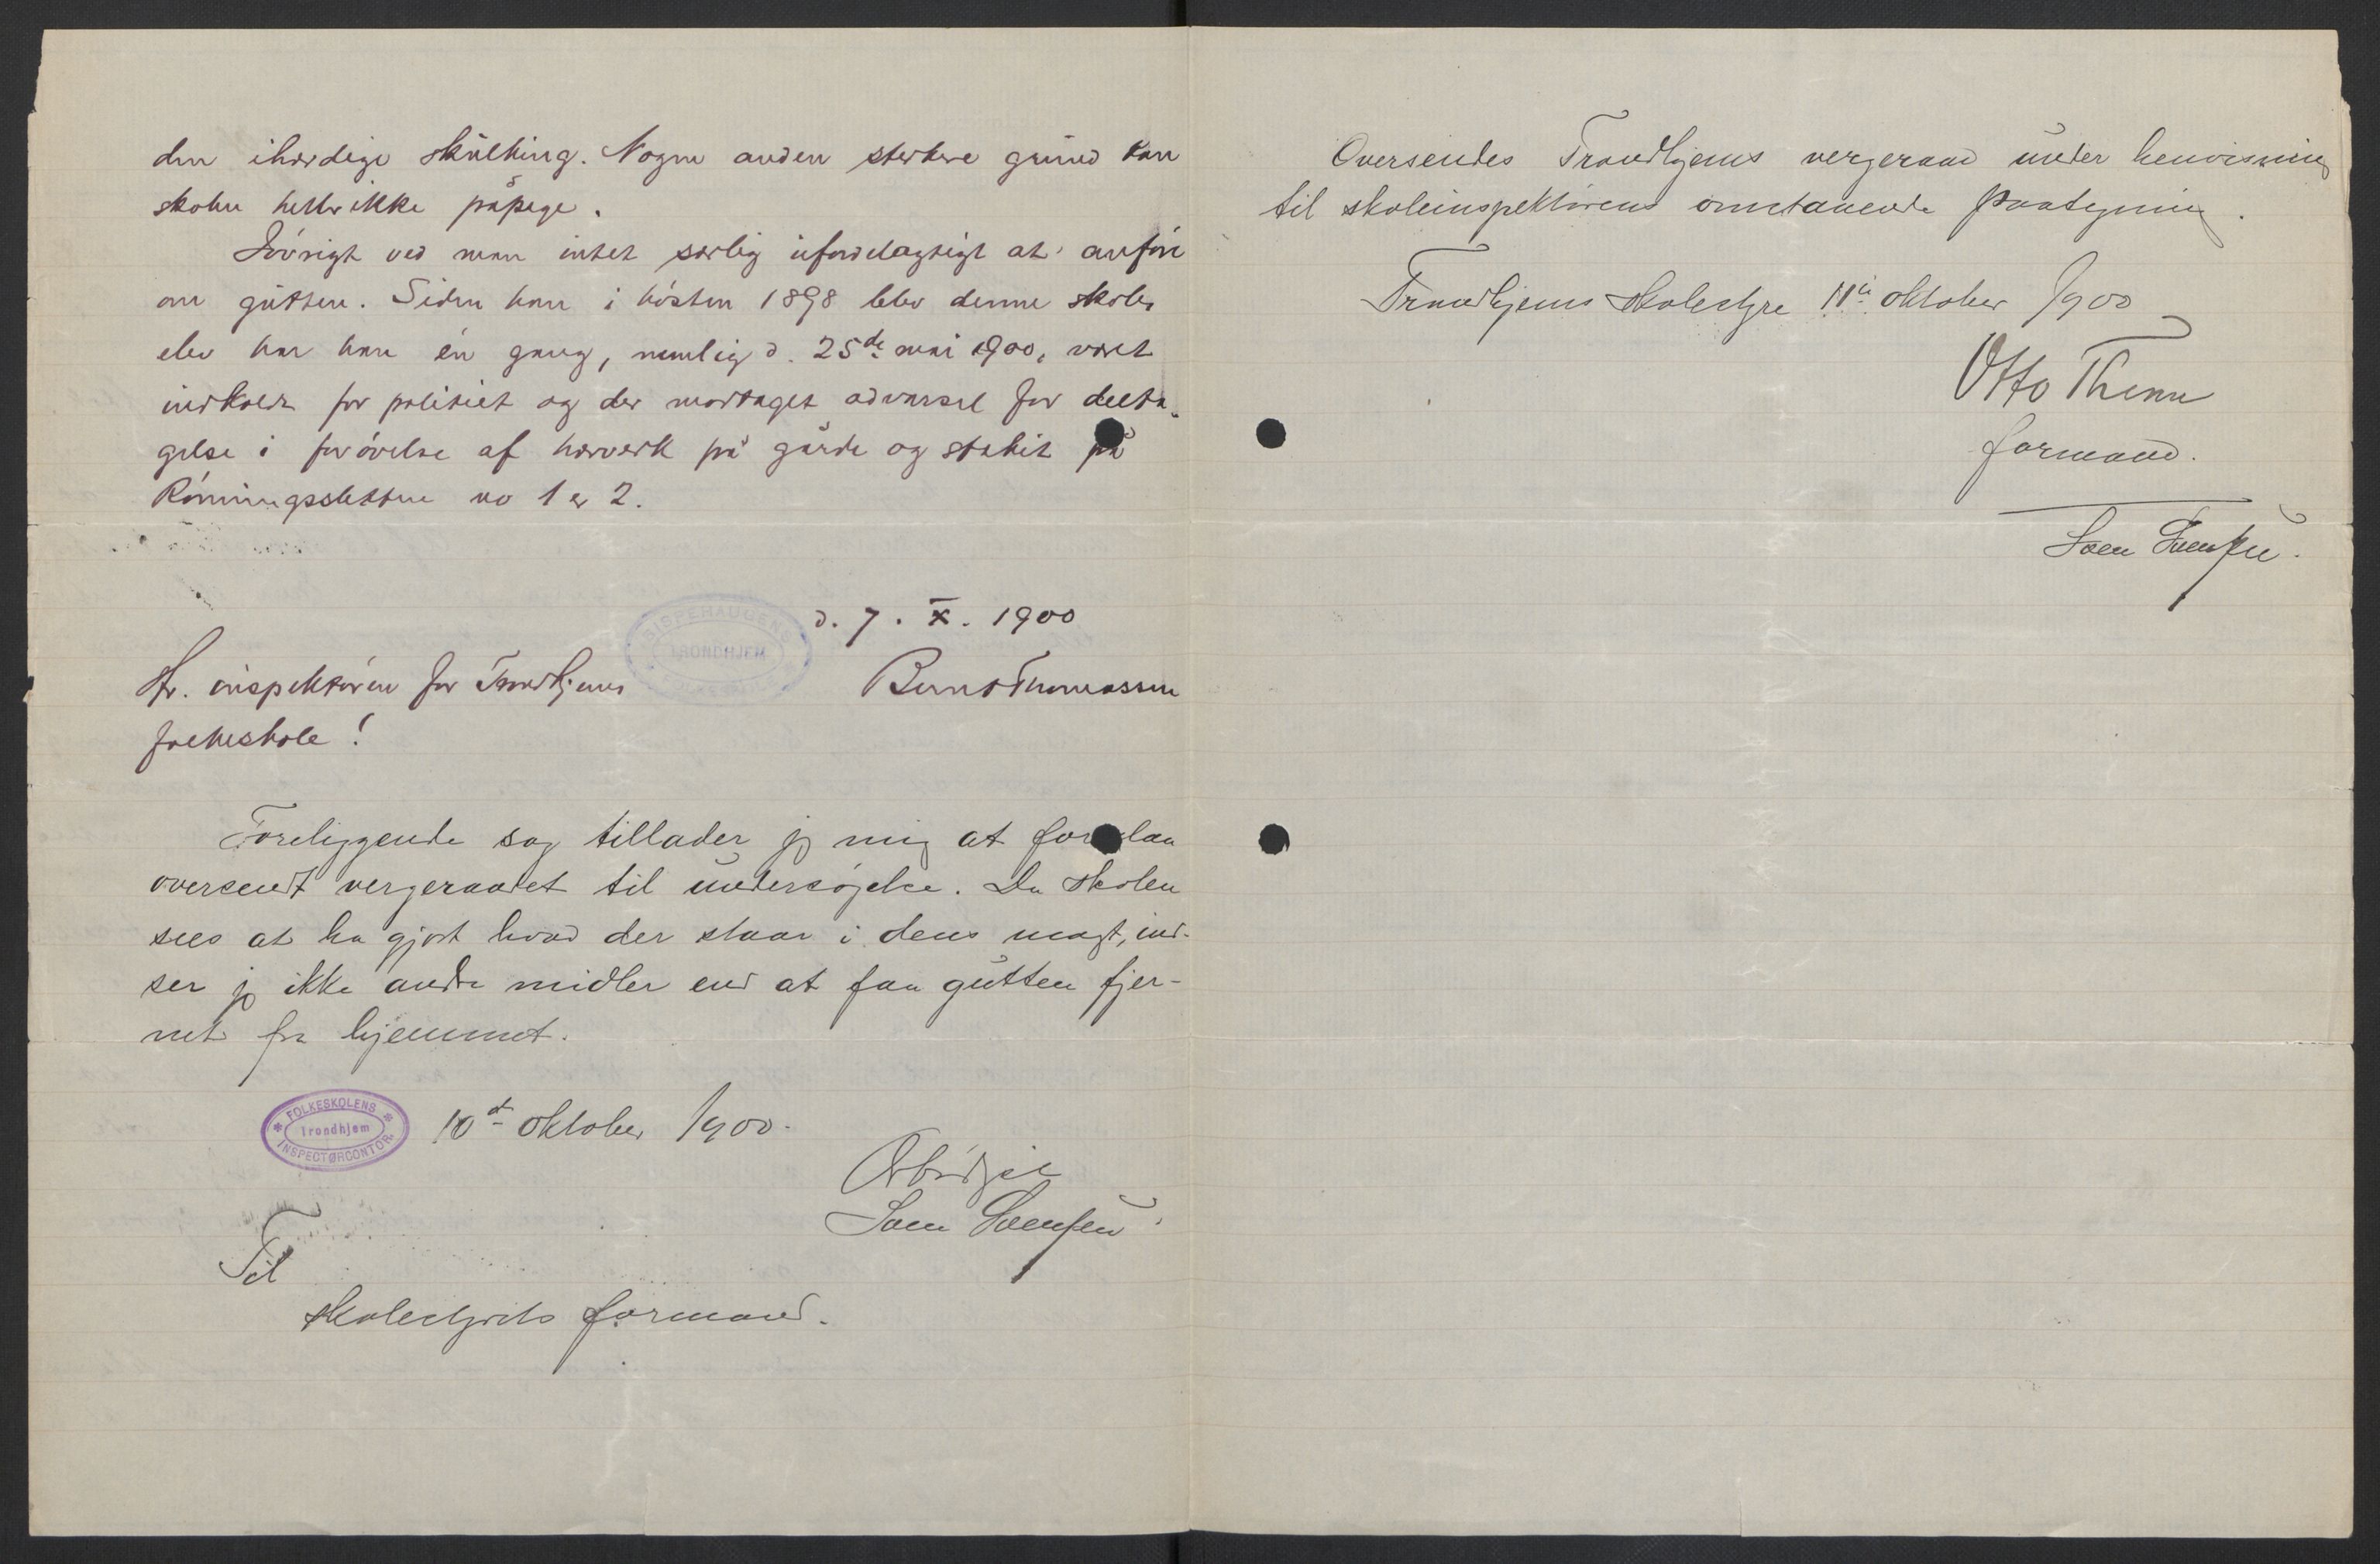 den ihærdige skulking. Nogen anden sterkere grund kan
skolen heller ikke påpege.
Iøvrigt ved man intet særlig ufordelagtigt at anføre
om gutten. Siden han i høsten 1898 blev denne skoles
elev har han én gang, nemlig d. 25de mai 1900, været
indkaldt for politiet og der mottaget advarsel for delta-
gelse i forøvelse af hærverk på gårde og stakit på
Rønningsletten no 1 & 2.
d. 7. X. 1900
BISPEHAUGENS
TRONDHJEM
Hr. inspektøren for Trondhjems
Bernt Thomassen
folkeskole!
Foreliggende sag tillader jeg mig at foreslaa
oversendt vergeraadet til undersøgelse. Da skolen
sees at ha gjort hvad der staar i dens magt, ind-
ser jeg ikke andre midler end at faa gutten fjer-
net fra hjemmet.
FOLKESKOLENS
Trondhjem
INSPECTØRCONTOR
10de oktober 1900.
Ærbødigst
Sven Svensen
Til
skolestyrets formand.
Oversendes Trondhjems vergeraad under henvisning
til skoleinspektørens omstaaende paategning.
Trondhjems skolestyre 11te oktober 1900
Otto
formand.
Sven Svensen.